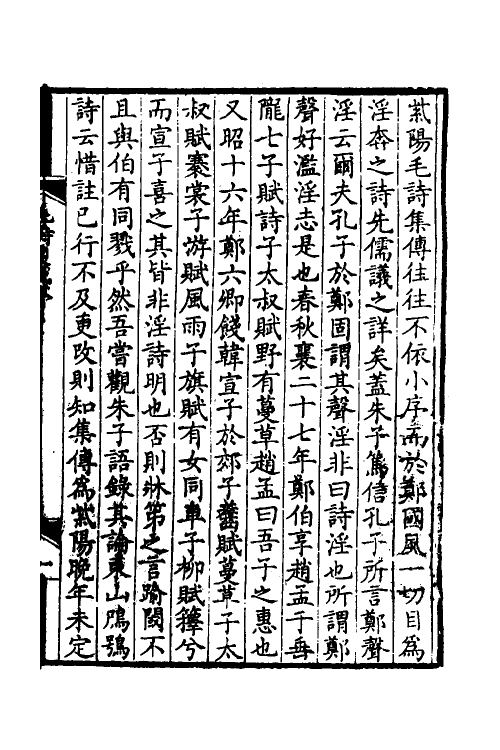 紫陽毛詩集傳往往不依小序而於鄭國風一切目為
淫奔之詩先儒議之詳矣蓋朱子篤信孔子所言鄭聲
淫云爾夫孔子於鄭固謂其聲淫非曰詩淫也所謂鄭
聲好濫淫志是也春秋襄二十七年鄭伯享趙孟于垂
隴七子賦詩子太叔賦野有蔓草趙孟曰吾子之惠也
又昭十六年鄭六卿餞韓宣子於郊子齹賦蔓草子太
叔賦褰裳子游賦風雨子旗賦有女同車子柳賦蘀兮
而宣子喜之其皆非淫詩明也否則牀第之言踰閾不
且與伯有同戮乎然吾嘗觀朱子語錄其論東山鴟鴞
詩云惜註已行不及更改則知集傳為紫陽晚年未定